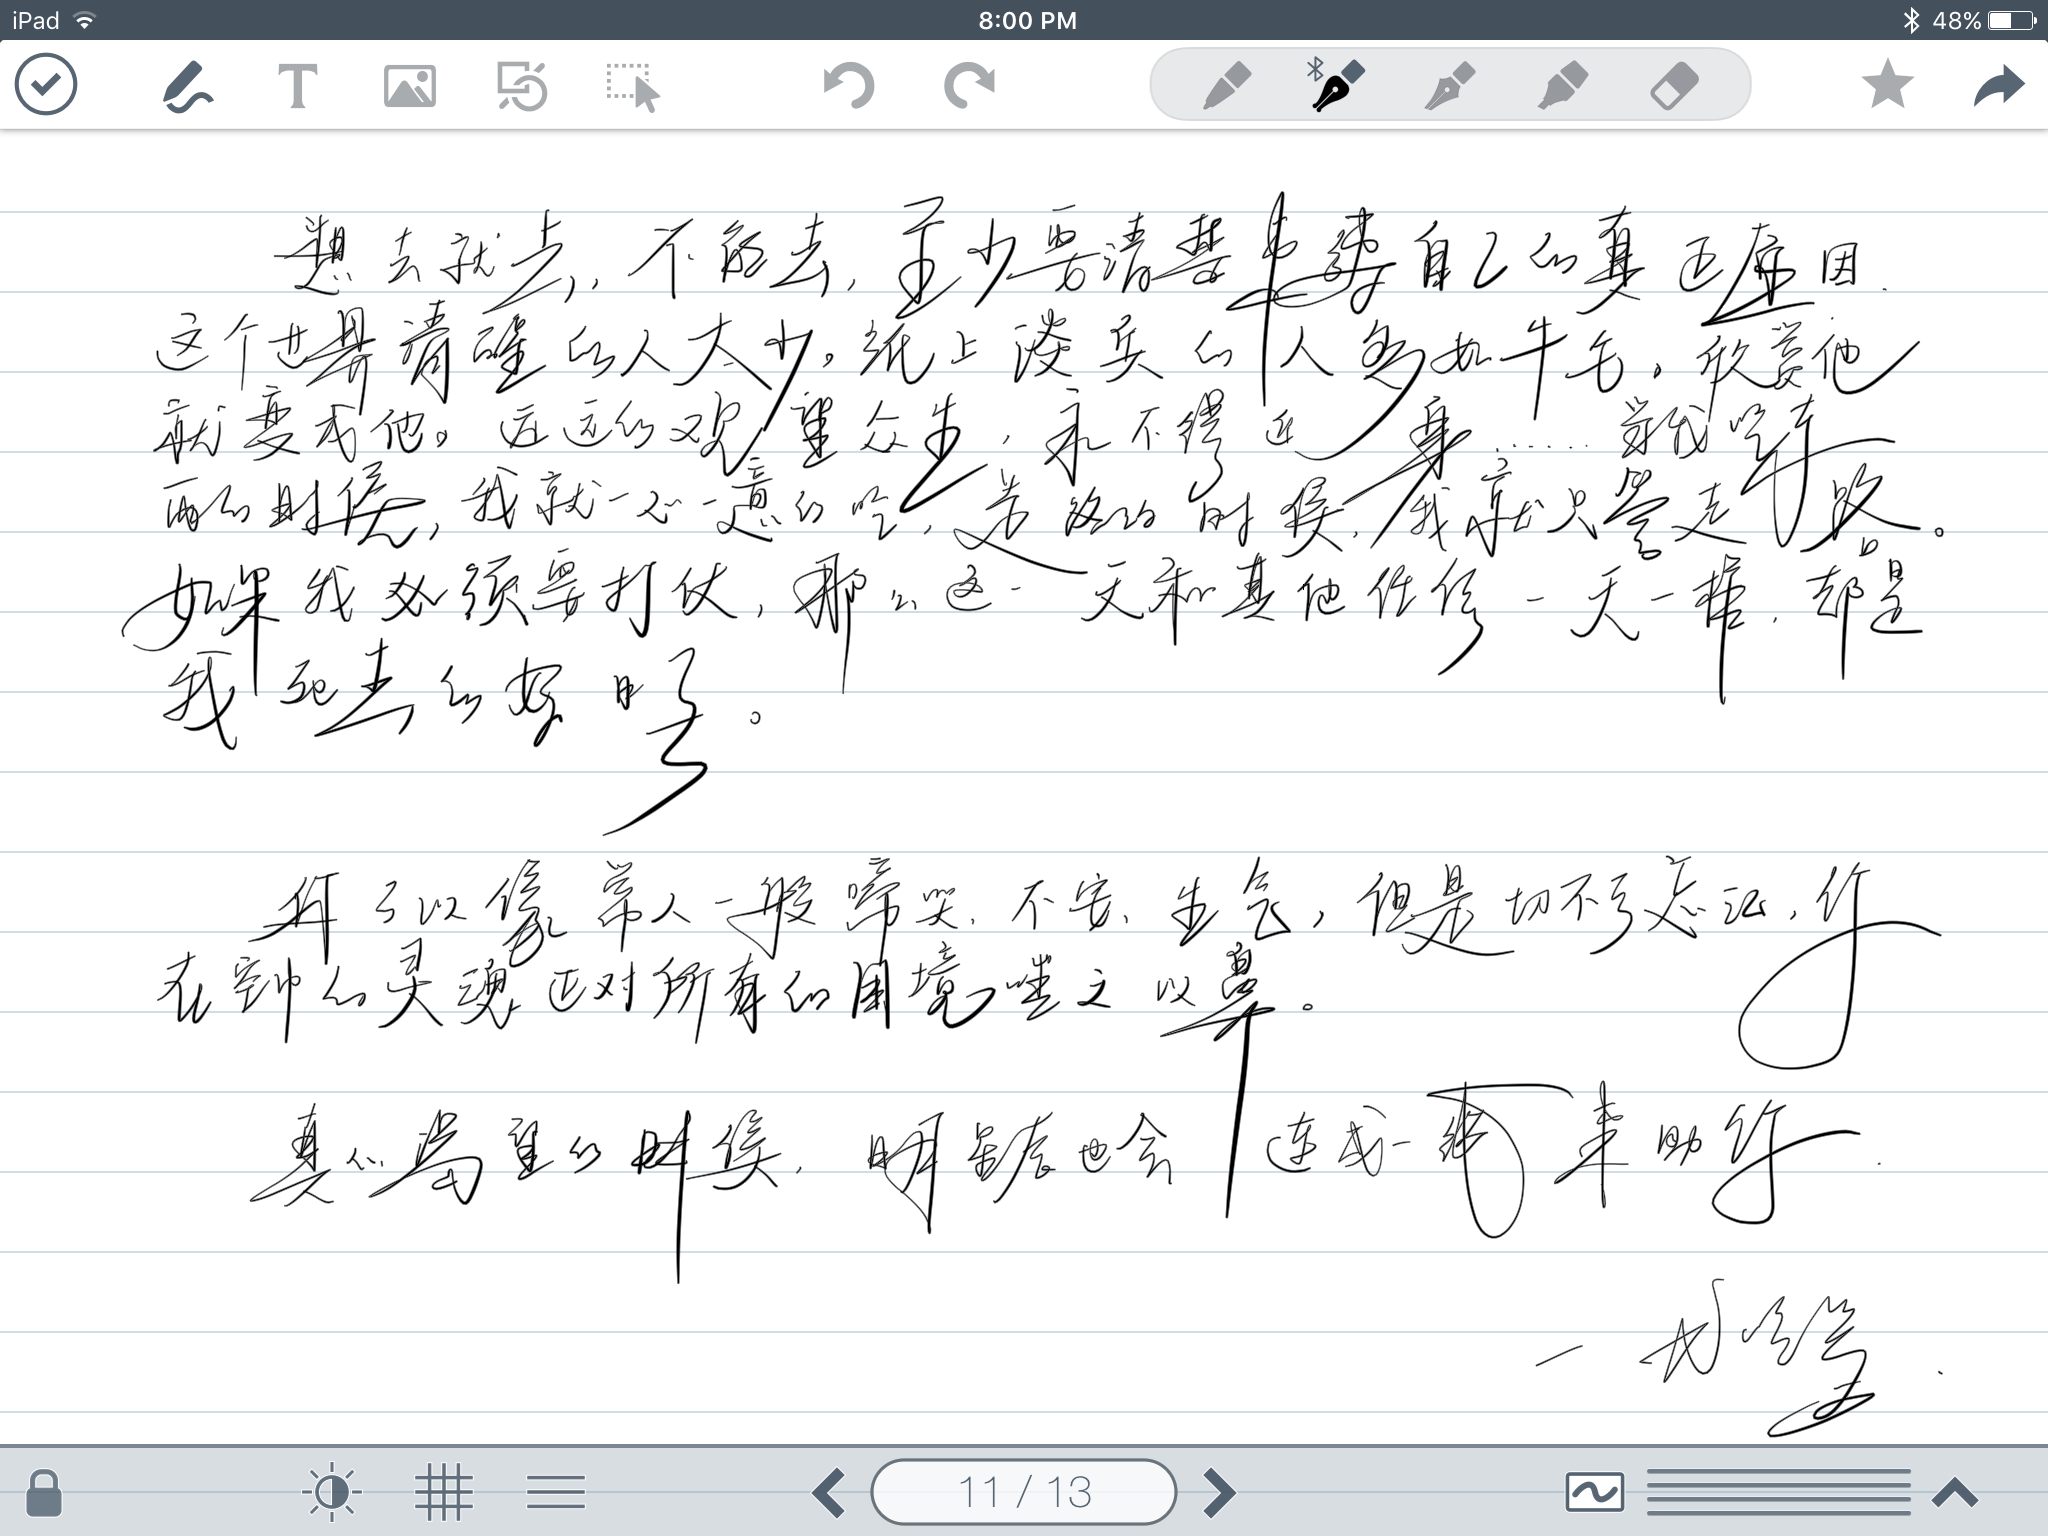 iPad 8:00 PM 48%
T
想去就去，不能去，至少要清楚事情自己的真正原因.
这个世界清醒的人太少。纸上谈兵的人多如牛毛。欣赏他
就变成他。远远的观望众生，永不得近身……当我吃东
西的时候，我就一心一意的吃，走路的时候，我就只管走路。
如果我必须要打仗，那么这一天和其他任何一天一样，都是
我死去的好日子。
你可以像常人一般啼哭、不安、生气，但是切不可忘记，你
在空中的灵魂正对所有的困境嗤之以鼻。
真心渴望的时候，明星也会连成一线来助你.
—
11 / 13